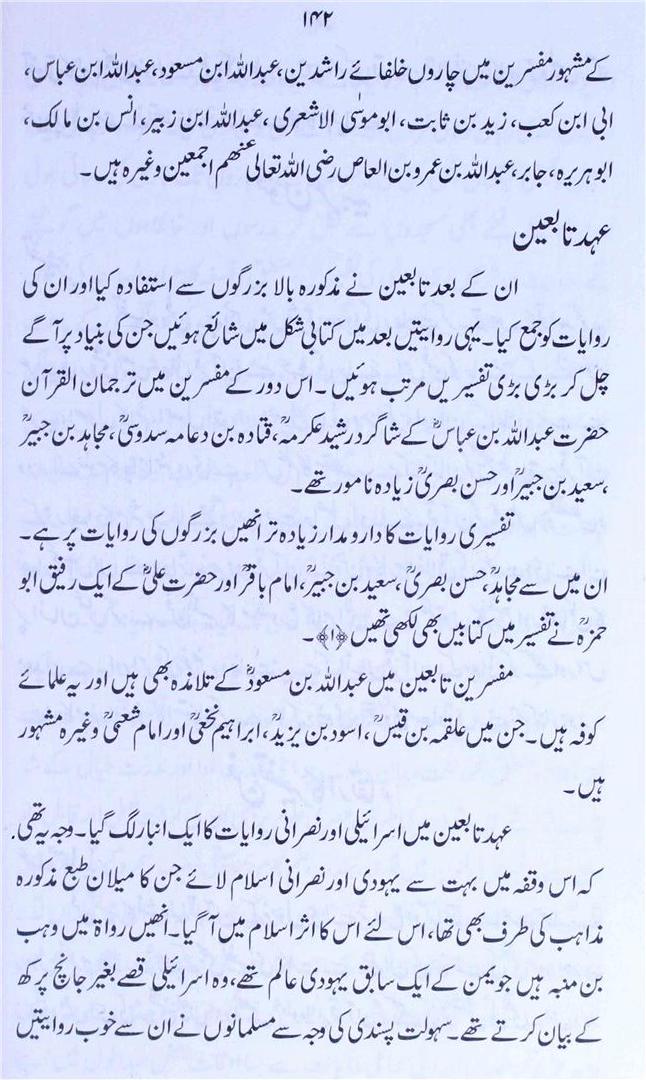 ۱۴۲
کے مشہور مفسرین میں چاروں خلفائے راشدین، عبداللہ ابن مسعود، عبداللہ ابن عباس،
ابی ابن کعب، زید بن ثابت، ابو موسٰی الاشعری، عبداللہ ابن زبیر، انس بن مالک،
ابو ہریرہ، جابر، عبداللہ بن عمرو بن العاص رضی اللہ تعالی عنھم اجمعین وغیرہ ہیں۔
عہد تابعین
ان کے بعد تابعین نے مذکورہ بالا بزرگوں سے استفادہ کیا اور ان کی
روایات کو جمع کیا۔ یہی روایتیں بعد میں کتابی شکل میں شائع ہوئیں جن کی بنیاد پر آگے
چل کر بڑی بڑی تفسیریں مرتب ہوئیں۔ اس دور کے مفسرین میں ترجمان القرآن
حضرت عبداللہ بن عباسؓ کے شاگرد رشید عکرمہؒ، قتادہ بن دعامہ سدوسیؒ، مجاہد بن جبیرؒ
،سعید بن جبیرؒ اور حسن بصریؒ زیادہ نامور تھے۔
تفسیری روایات کا دارومدار زیادہ تر انھیں بزرگوں کی روایات پر ہے۔
ان میں سے مجاہدؒ، حسن بصریؒ، سعید بن جبیرؒ، امام باقرؒ اور حضرت علیؓ کے ایک رفیق ابو
حمزہؒ نے تفسیر میں کتابیں بھی لکھی تھیں ﴿۱﴾۔
مفسرین تابعین میں عبداللہ بن مسعودؓ کے تلامذہ بھی ہیں اور یہ علمائے
کوفہ ہیں۔ جن میں علقمہ بن قیسؒ، اسود بن یزیدؒ، ابراہیم نخعیؒ اور امام شعمیؒ وغیرہ مشہور
ہیں۔
عہد تابعین میں اسرائیلی اور نصرانی روایات کا ایک انبار لگ گیا۔ وجہ یہ تھی۔
کہ اس وقفہ میں بہت سے یہودی اور نصرانی اسلام لائے جن کا میلان طبع مذکورہ
مذاہب کی طرف بھی تھا، اس لئے اس کا اثر اسلام میں آ گیا۔ انھیں رواۃ میں وہب
بن منبہ ہیں جو یمن کے ایک سابق یہودی عالم تھے، وہ اسرائیلی قصے بغیر جانچ پرکھ
کے بیان کرتے تھے۔ سہولت پسندی کی وجہ سے مسلمانوں نے ان سے خوب روایتیں